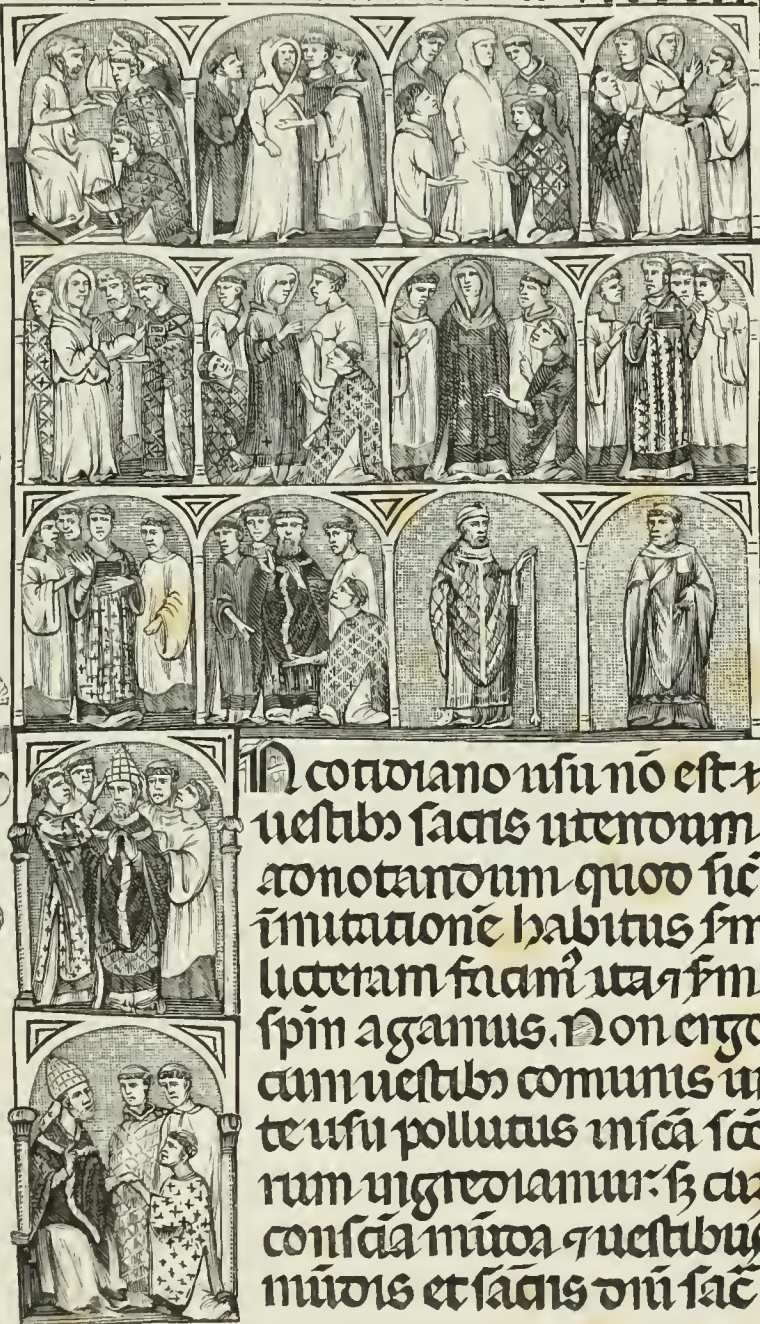 IN cotidiano usu nō est
uestibꝫ sacris utendum
adnotandum quod sic̄
īmutationē habitus ẜm
litteram facimꝰ ita ⁊ ẜm
spm̄ agamus. Non ergo
cum uestibꝫ comunis ui
te usu pollutus in sc̄a sc̄o
rum ingrediamur: sꝫ cū
consc̄ia mūda ⁊ uestibus
mūdis et sacris dn̄i sac̄